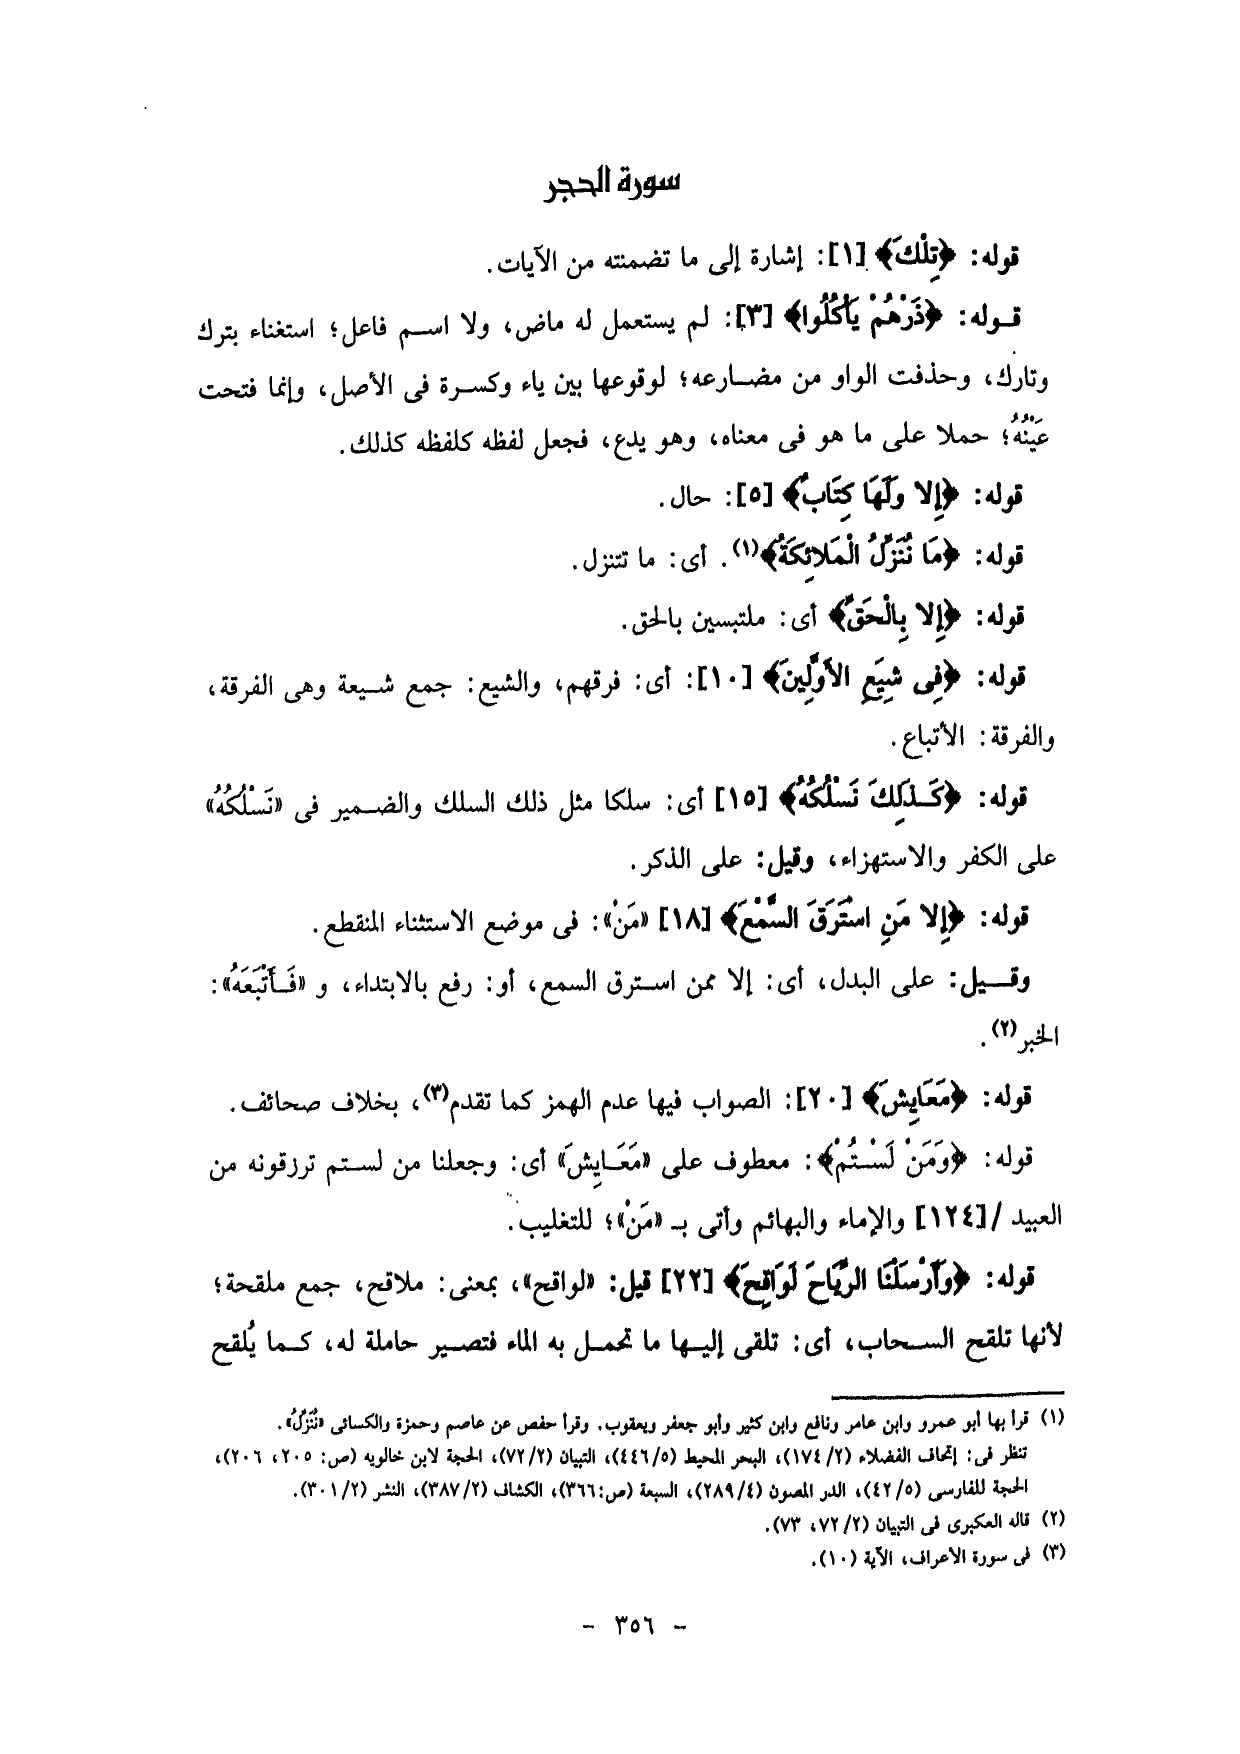 سورة الحجر
قوله: ﴿تِلْكَ﴾ [١]: إشارة إلى ما تضمنته من الآيات.
قوله: ﴿ذَرْهُمْ يَأْكُلُوا﴾ [٣]: لم يستعمل له ماض، ولا اسم فاعل؛ استغناء بترك
وتارك، وحذفت الواو من مضارعه؛ لوقوعها بين ياء وكسرة فى الأصل، وإنما فتحت
عَيْنُهُ؛ حملا على ما هو فى معناه، وهو يدع، فجعل لفظه كلفظه كذلك.
قوله: ﴿إِلا وَلَهَا كِتَابٌ﴾ [٥]: حال.
قوله: ﴿مَا نُنَزِّلُ الْمَلائِكَةُ﴾(١). أى: ما تتنزل.
قوله: ﴿إِلا بِالْحَقِّ﴾ أى: ملتبسين بالحق.
قوله: ﴿فِى شِيَعِ الأَوَّلِينَ﴾ [١٠]: أى: فرقهم، والشيع: جمع شيعة وهى الفرقة،
والفرقة: الأتباع.
قوله: ﴿كَذَلِكَ نَسْلُكُهُ﴾ [١٥] أى: سلكا مثل ذلك السلك والضمير فى «نَسْلُكُهُ»
على الكفر والاستهزاء، وقيل: على الذكر.
قوله: ﴿إِلا مَنِ اسْتَرَقَ السَّمْعَ﴾ [١٨] «مَنْ»: فى موضع الاستثناء المنقطع.
وقيل: على البدل، أى: إلا ممن استرق السمع، أو: رفع بالابتداء، و «فَأَتْبَعَهُ»:
الخبر(٢).
قوله: ﴿مَعَايِشَ﴾ [٢٠]: الصواب فيها عدم الهمز كما تقدم(٣)، بخلاف صحائف.
قوله: ﴿وَمَنْ لَسْتُمْ﴾: معطوف على «مَعَايِشَ» أى: وجعلنا من لستم ترزقونه من
العبيد /[١٢٤] والإماء والبهائم وأتى بـ «مَنْ»؛ للتغليب.
قوله: ﴿وَأَرْسَلْنَا الرِّيَاحَ لَوَاقِحَ﴾ [٢٢] قيل: «لواقح»، بمعنى: ملاقح، جمع ملقحة؛
لأنها تلقح السحاب، أى: تلقى إليها ما تحمل به الماء فتصير حاملة له، كما يُلقح
(١) قرأ بها أبو عمرو وابن عامر ونافع وابن كثير وأبو جعفر ويعقوب. وقرأ حفص عن عاصم وحمزة والكسائى «نُنَزِّلُ».
تنظر فى: إتحاف الفضلاء (١٧٤/٢)، البحر المحيط (٤٤٦/٥)، التبيان (٧٢/٢)، الحجة لابن خالويه (ص: ٢٠٥، ٢٠٦)،
الحجة للفارسى (٤٢/٥)، الدر المصون (٢٨٩/٤)، السبعة (ص:٣٦٦)، الكشاف (٣٨٧/٢)، النشر (٣٠١/٢).
(٢) قاله العكبرى فى التبيان (٧٢/٢، ٧٣).
(٣) فى سورة الأعراف، الآية (١٠).
- ٣٥٦ -